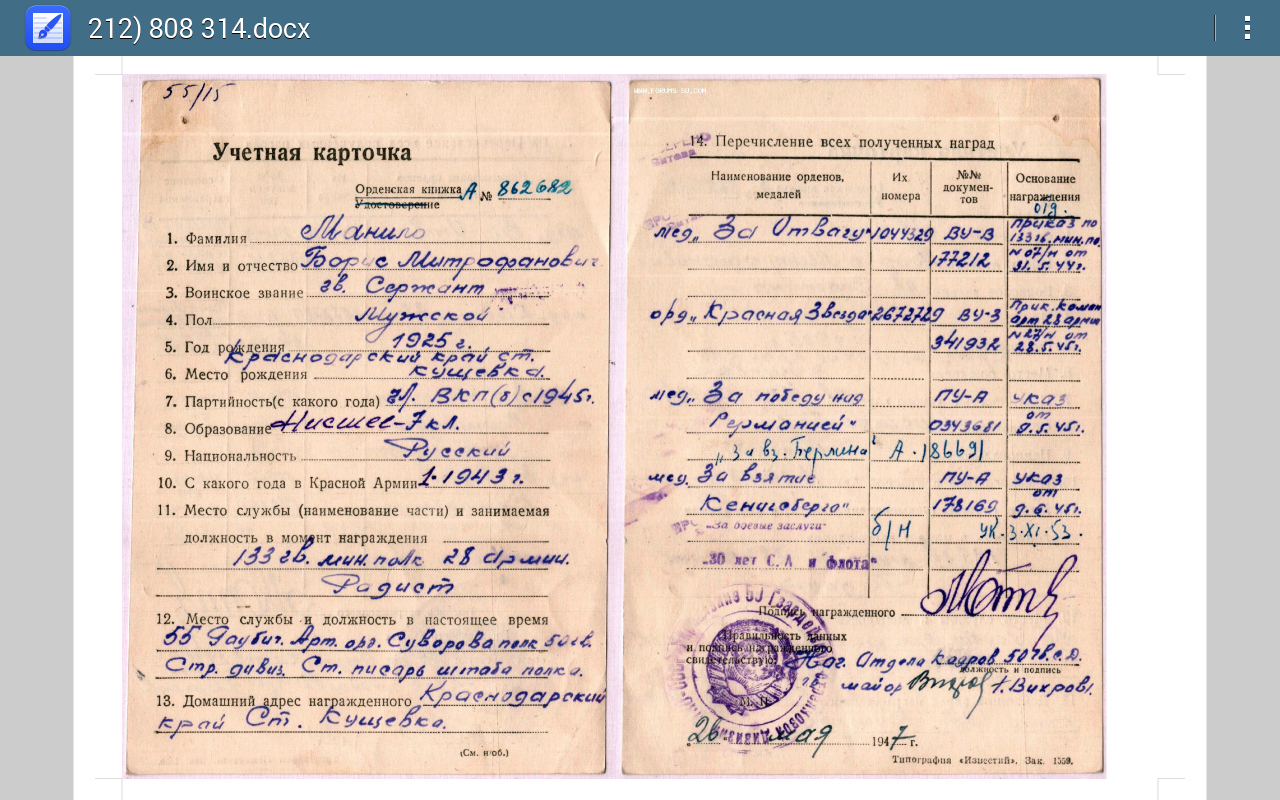 212) 808 314.docx
55/15
Учетная карточка
Орденская книжка А № 862682
Удостоверение
1. Фамилия Манило
2. Имя и отчество Борис Митрофанович
3. Воинское звание гв. Сержант
4. Пол Мужской
5. Год рождения 1925 г.
Краснодарский край ст.
6. Место рождения Кущевка.
7. Партийность(с какого года) чл. ВКП(б) с 1945г.
8. Образование Нисшее-7 кл.
9. Национальность Русский
10. С какого года в Красной Армии 1.1943 г.
11. Место службы (наименование части) и занимаемая
должность в момент награждения
133 гв. мин. полк 28 армии.
Радист
12. Место службы и должность в настоящее время
55 Гаубич. Арт. орд. Суворова полк 50 гв.
Стр. дивиз. Ст. писарь штаба полка.
13. Домашний адрес награжденного Краснодарский
край Ст. Кущевка.
(См. н об.)
WWW.FORUMS-SU.COM
14. Перечисление всех полученных наград
Наименование орденов, медалей
Их номера
№№ документов
Основание награждения
мед. „За Отвагу" 1044329 ВУ-В Приказ по
177212 133 гв. мин. по.
№ 07/н от
31.5.44г.
орд. „Красная Звезда" 2672729 ВУ-З Прик. коман
арт 28 армии
341932 №27/н от
28.5.45г.
мед. „За победу над ПУ-А указ
Германией" 0343681 от 9.5.45г.
„За вз. Берлина" А.186691
мед. За взятие ПУ-А указ
Кенигсберга" 178169 от 9.6.45г.
„За боевые заслуги" б/н ук. 3.XI.53.
„30 лет С.А. и флота"
Подпись награжденного
Правильность данных
и подпись награжденного
свидетельствую: Нач. Отдела Кадров 50 гв.с.д.
должность и подпись
гв. майор /Вихров/.
М. П.
26 мая 1947 г.
Типография «Известий». Зак. 1559.